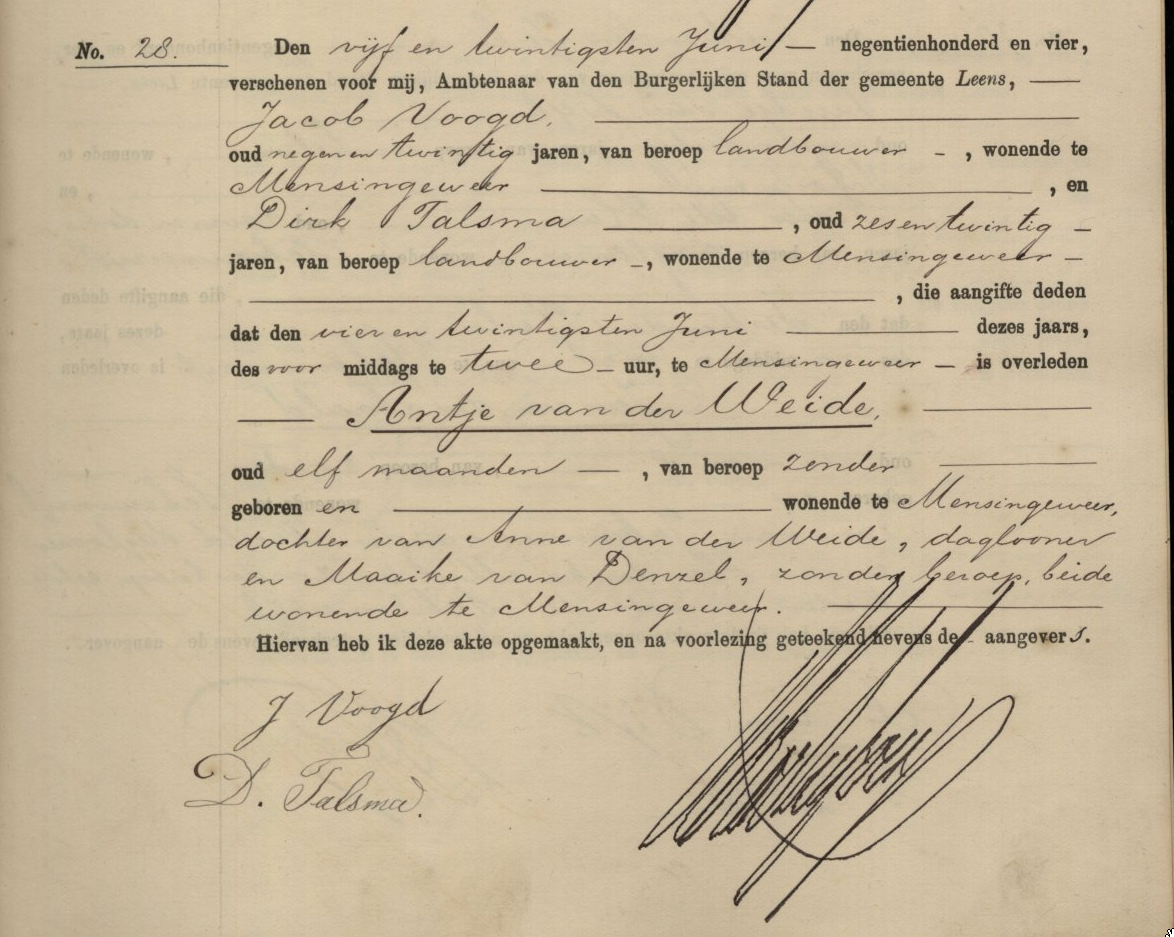 No. 28. Den vijf en twintigsten Juni — negentienhonderd en vier,
verschenen voor mij, Ambtenaar van den Burgerlijken Stand der gemeente Leens, —
Jacob Voogd, —
oud negen en twintig jaren, van beroep landbouwer - , wonende te
Mensingeweer — , en
Dirk Talsma — , oud zes en twintig —
jaren, van beroep landbouwer -, wonende te Mensingeweer —
— , die aangifte deden
dat den vier en twintigsten Juni — dezes jaars,
des voor middags te twee — uur, te Mensingeweer — is overleden
— Antje van der Weide, —
oud elf maanden — , van beroep zonder —
geboren en — wonende te Mensingeweer,
dochter van Anne van der Weide, daglooner
en Maaike van Denzel, zonder beroep, beide
wonende te Mensingeweer. —
Hiervan heb ik deze akte opgemaakt, en na voorlezing geteekend nevens de - aangevers.
J Voogd
D. Talsma.